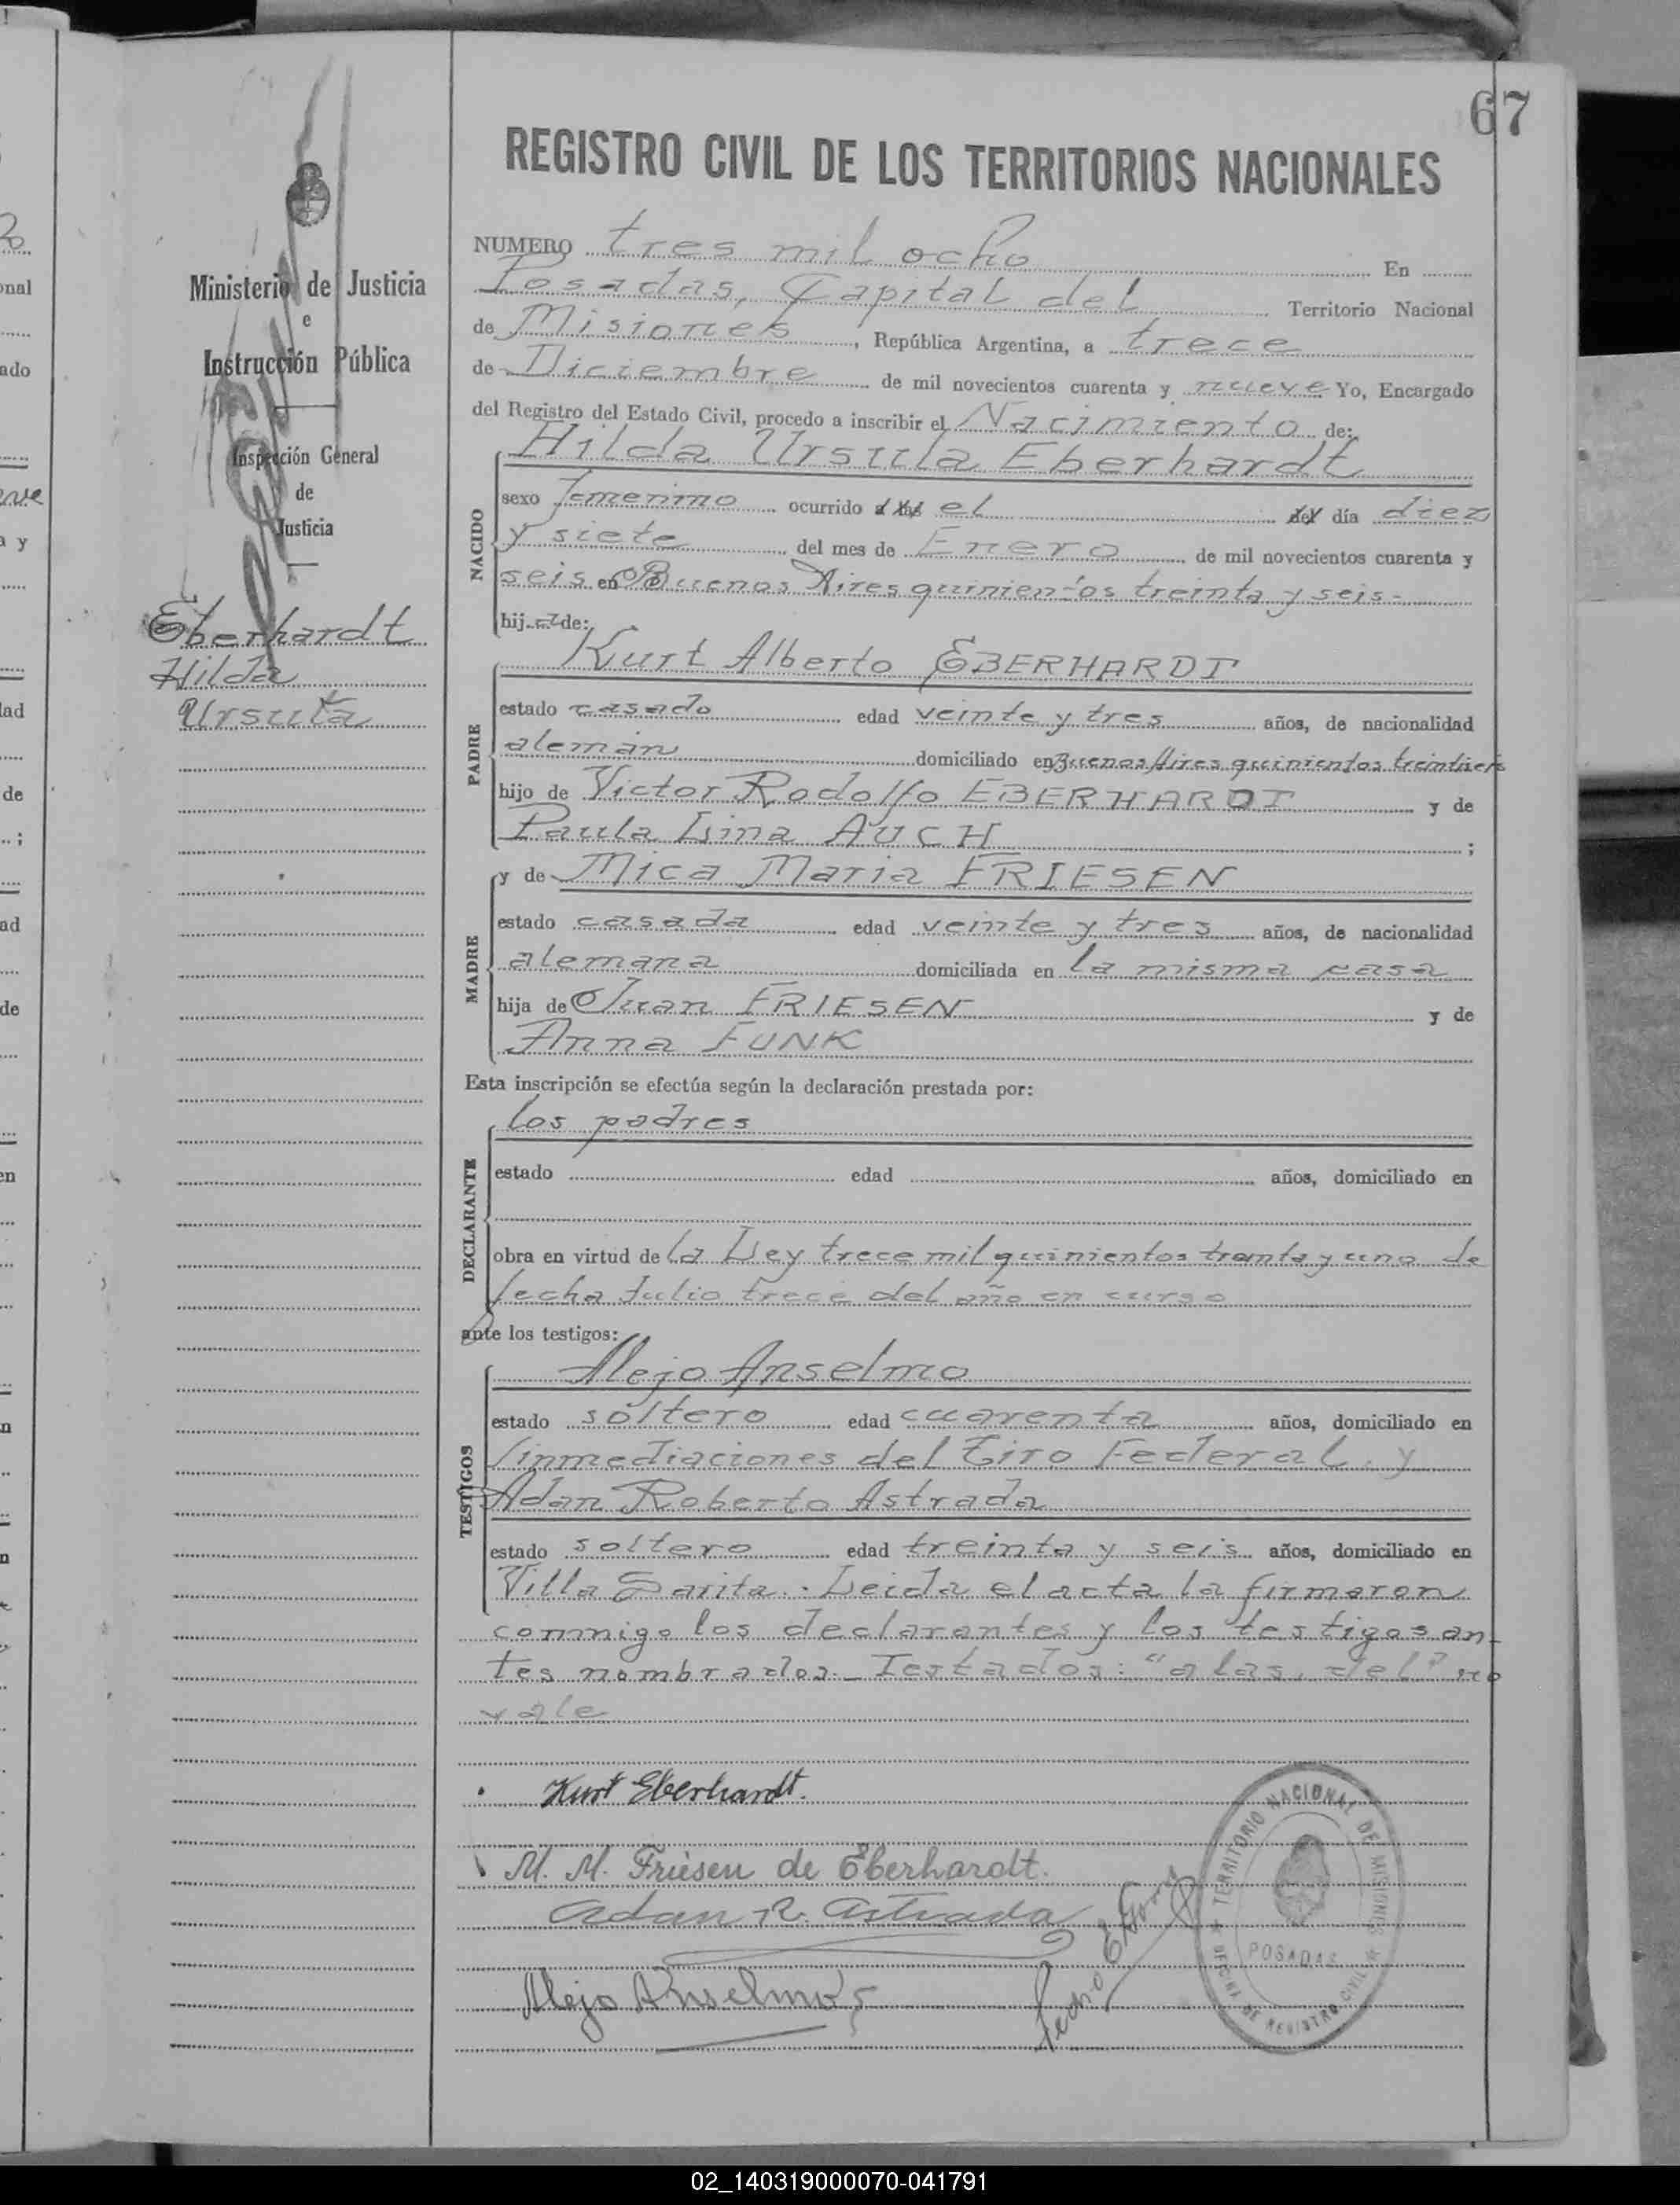 67
REGISTRO CIVIL DE LOS TERRITORIOS NACIONALES
Ministerio de Justicia
e
Instrucción Pública
Inspección General
de
Justicia
Eberhardt
Hilda
Ursula
NUMERO tres mil ocho En
Posadas, Capital del Territorio Nacional
de Misiones, República Argentina, a trece
de Diciembre de mil novecientos cuarenta y nueve Yo, Encargado
del Registro del Estado Civil, procedo a inscribir el Nacimiento de:
Hilda Ursula Eberhardt
NACIDO
sexo femenino ocurrido a las el del día diez
y siete del mes de Enero de mil novecientos cuarenta y
seis en Buenos Aires quinientos treinta y seis-
hij a de:
Kurt Alberto EBERHARDT
PADRE
estado casado edad veinte y tres años, de nacionalidad
alemán domiciliado en Buenos Aires quinientos
hijo de Victor Rodolfo EBERHARDT y de
Paula Lina AUCH ;
MADRE
y de Mica Maria FRIESEN
estado casada edad veinte y tres años, de nacionalidad
alemana domiciliada en la misma casa
hija de Juan FRIESEN y de
Anna FUNK
Esta inscripción se efectúa según la declaración prestada por:
DECLARANTE
los padres
estado edad años, domiciliado en
obra en virtud de la Ley trece mil quinientos treinta y uno de
fecha Julio trece del año en curso
ante los testigos:
TESTIGOS
Alejo Anselmo
estado soltero edad cuarenta años, domiciliado en
inmediaciones del Tiro Federal y
Adan Roberto Astrada
estado soltero edad treinta y seis años, domiciliado en
Villa Sarita.. Leida el acta la firmaron
conmigo los declarantes y los testigos an-
tes nombrados._ Testados: "a las, del" no
vale
Kurt Eberhardt.
M. M. Friesen de Eberhardt.
Adan R. Astrada
Alejo Anselmo
TERRITORIO NACIONAL DE MISIONES
POSADAS
OFICINA DE REGISTRO CIVIL
02_140319000070-041791